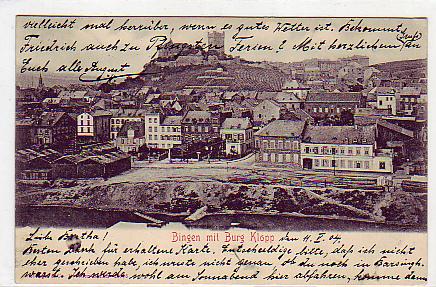 vielleicht mal herüber, wenn es gutes Wetter ist. Bekommt
Friedrich auch zu Pfingsten Ferien? Mit herzlichen Gruß
Euch allen August
Bingen mit Burg Klopp
den 11. V. 04
Liebe Bertha!
Besten Dank für erhaltene Karte. Entschuldige bitte, daß ich nicht
eher geschrieben habe, ich wußte nicht genau ob du noch in Barsingh.
warst. Ich werde wohl am Sonnabend hier abfahren, komme dann